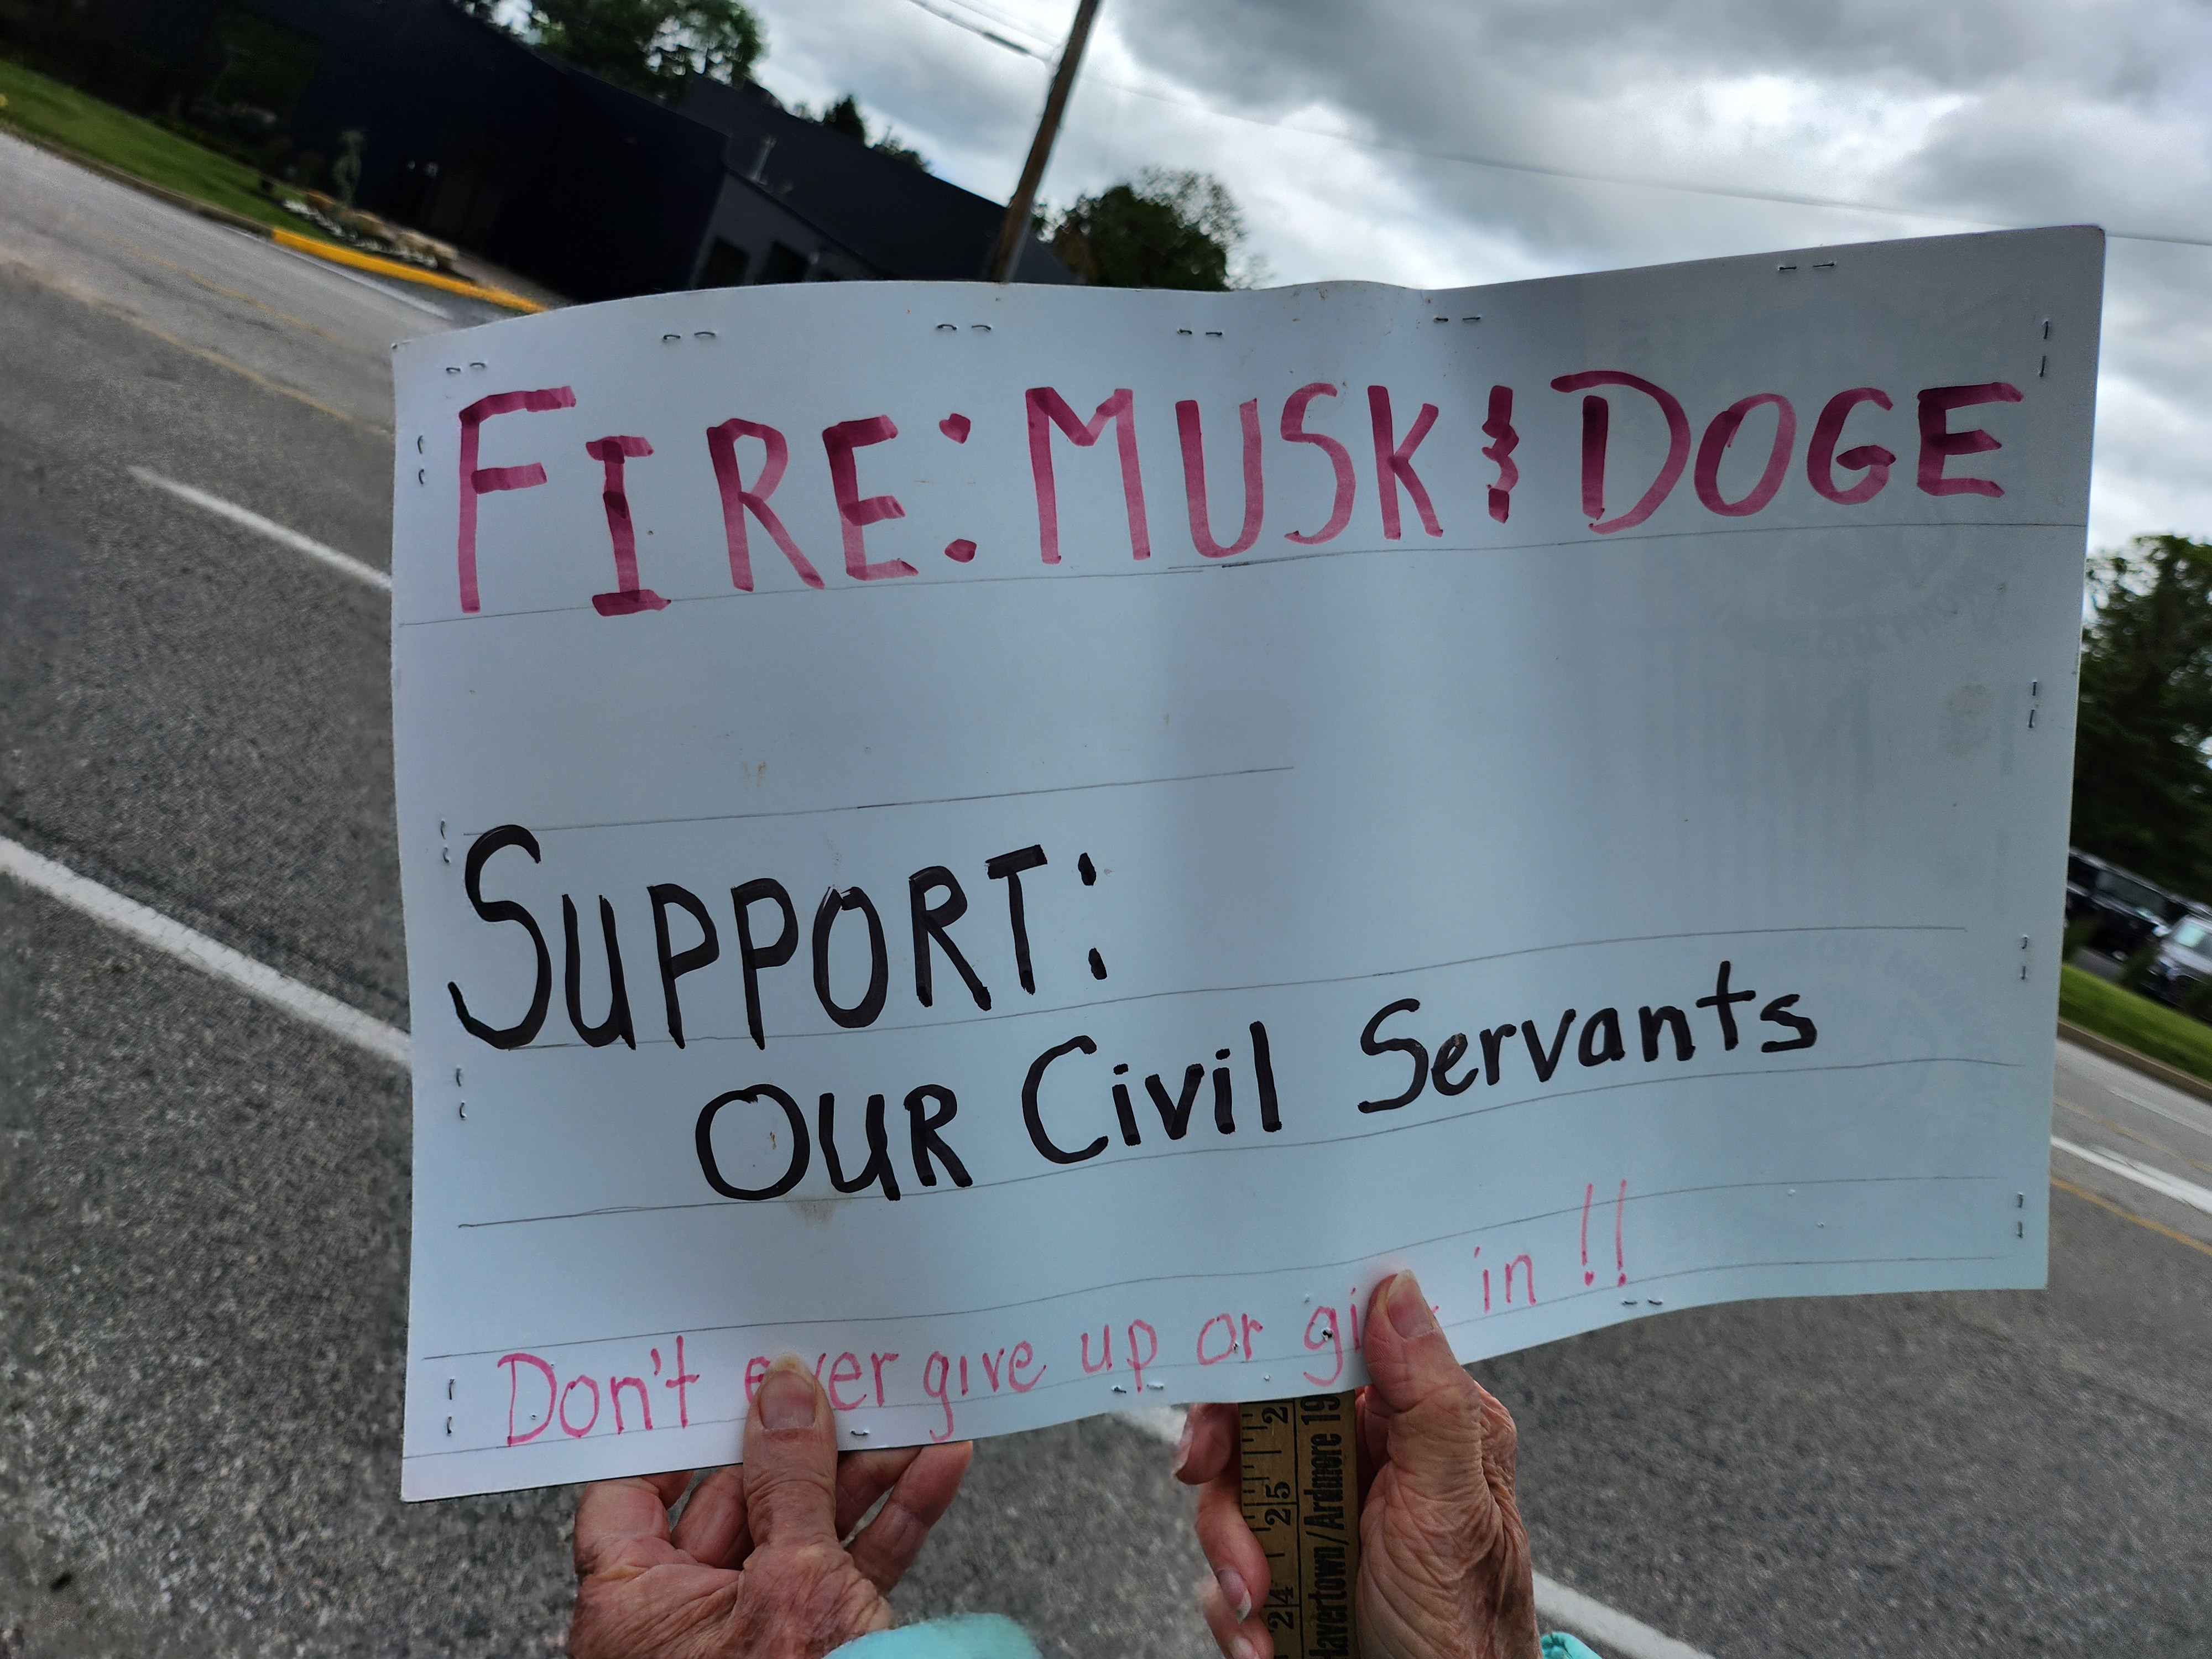 FIRE: MUSK & DOGE
SUPPORT:
OUR Civil Servants
Don't ever give up or in !!
24 25 2
Havertown/Ardmore 19